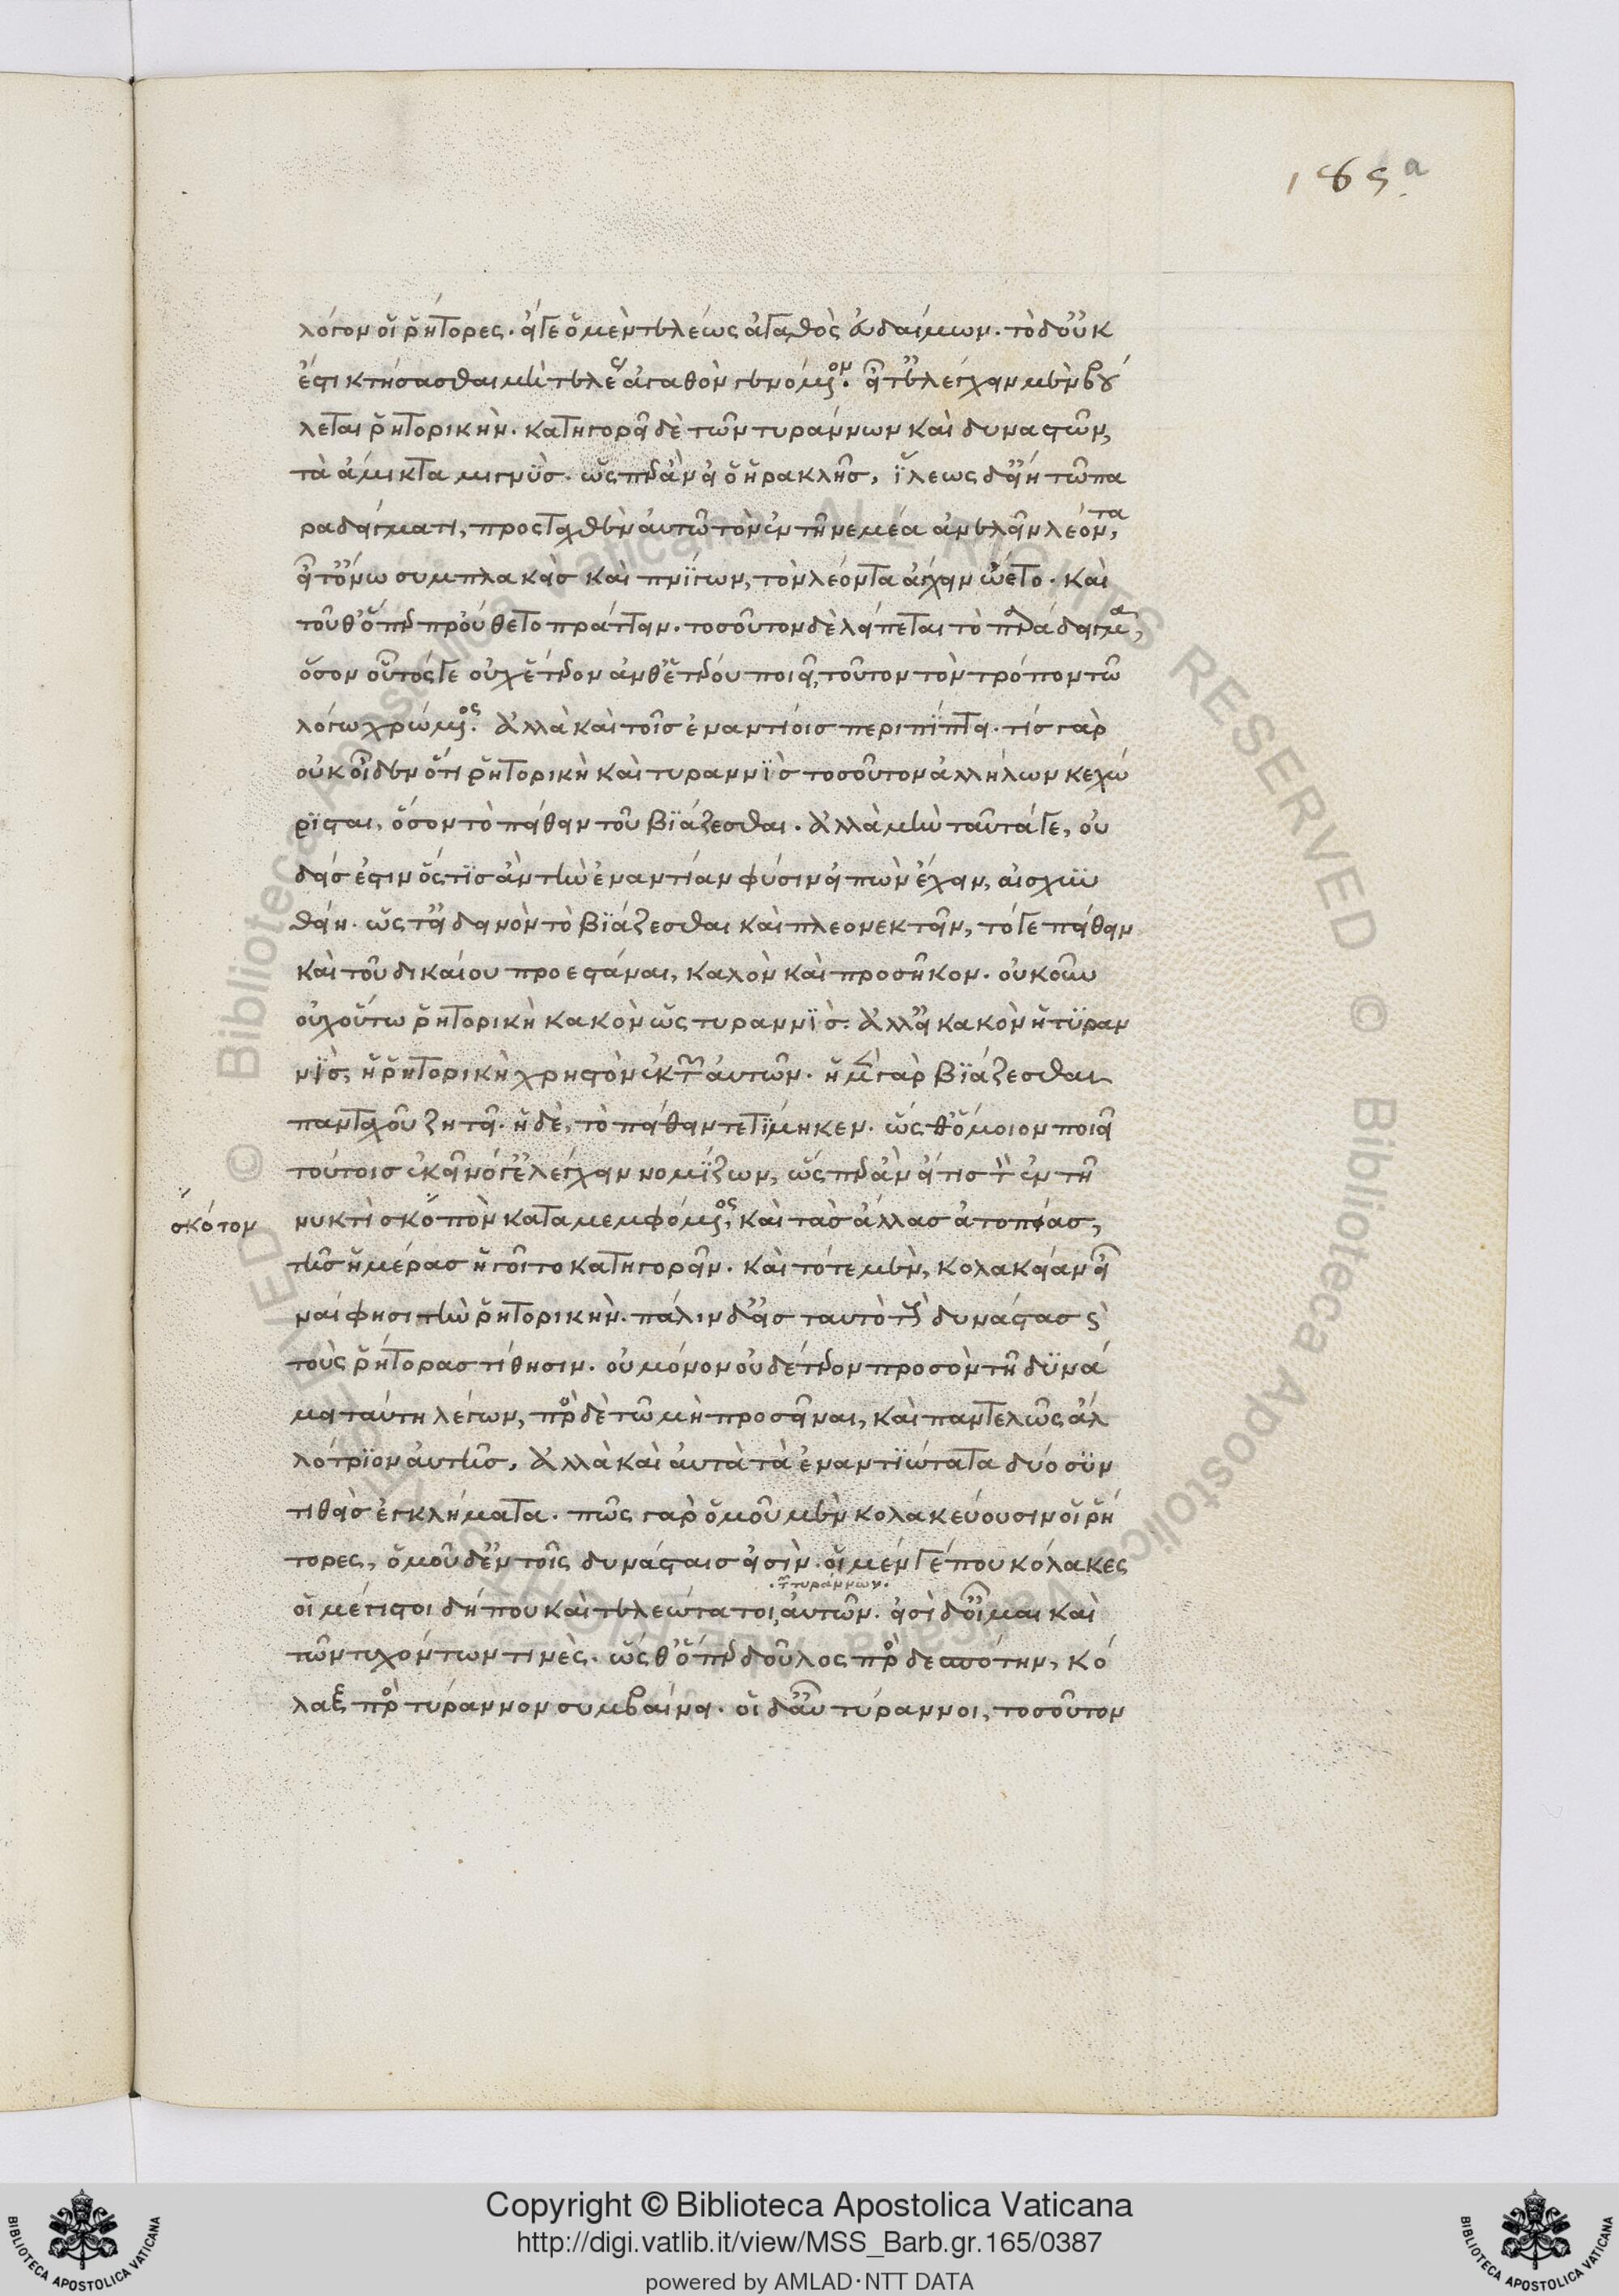 185 a
λόγον οἱ ῥήτορες. εἴγε ὁ μὲν τελέως ἀγαθὸς εὐδαίμων. τὸ δ' οὐκ
ἔστι κτήσασθαι μὴ τελέως ἀγαθὸν γενόμενον. εἶτ' ἐλέγχειν μὲν βού
λεται ῥητορικήν. κατηγορεῖ δὲ τῶν τυράννων καὶ δυναστῶν,
τὰ ἄμικτα μιγνὺς. ὥσπερ ἂν εἰ ὁ ἡρακλῆς, ἵλεως δ' εἴη τῶ πα
ραδείγματι, προσταχθὲν αὐτῶ τὸν ἐν τῆ νεμέα ἀνελεῖν λέοντα,
εἶτ' ὄνω συμπλακεὶς καὶ πνίγων, τὸν λέοντα ἄγχειν ὤετο. καὶ
τοῦθ' ὅπερ προὔθετο πράττειν. τοσοῦτον δὲ λείπεται τὸ παράδειγμα,
ὅσον οὗτός γε οὐχ ἕτερον ἀνθ' ἑτέρου ποιεῖ, τοῦτον τὸν τρόπον τῶ
λόγω χρώμενος. ἀλλὰ καὶ τοῖς ἐναντίοις περιπίπτει. τίς γὰρ
οὐκ οἶδεν ὅτι ῥητορικὴ καὶ τυραννὶς τοσοῦτον ἀλλήλων κεχώ
ρισται, ὅσον τὸ πείθειν τοῦ βιάζεσθαι. ἀλλὰ μὴν ταῦτά γε, οὐ
δείς ἐστιν ὅστις ἂν τὴν ἐναντίαν φύσιν εἰπὼν ἔχειν, αἰσχυν
θείη. ὥστ' εἰ δεινὸν τὸ βιάζεσθαι καὶ πλεονεκτεῖν, τό γε πείθειν
καὶ τοῦ δικαίου προεστάναι, καλὸν καὶ προσῆκον. οὐκοῦν
οὐχ οὕτω ῥητορικὴ κακὸν ὡς τυραννὶς. ἀλλ' εἰ κακὸν ἡ τυραν
νὶς, ἡ ῥητορικὴ χρηστὸν ἐκ τῶν αὐτῶν. ἡ μὲν γὰρ βιάζεσθαι
πανταχοῦ ζητεῖ. ἡ δὲ, τὸ πείθειν τετίμηκεν. ὥσθ' ὅμοιον ποιεῖ
τούτοις ἐκεῖνό γ' ἐλέγχειν νομίζων, ὥσπερ ἂν εἴ τις τὸν ἐν τῆ
σκότον
νυκτὶ σκοπὸν καταμεμφόμενος, καὶ τὰς ἄλλας ἀτοπίας,
τῆς ἡμέρας ἡγοῖτο κατηγορεῖν. καὶ τότε μὲν, κολακείαν εἶ
ναί φησι τὴν ῥητορικήν. πάλιν δ' εἰς ταυτὸ τοῖς δυνάσταις
τοὺς ῥήτορας τίθησιν. οὐ μόνον οὐδέτερον προσὸν τῆ δυνά
μει ταύτη λέγων, πρὸς δὲ τῶ μὴ προσεῖναι, καὶ παντελῶς ἀλ
λότριον αὐτῆς, ἀλλὰ καὶ αὐτὰ τὰ ἐναντιώτατα δύο συν
τιθεὶς ἐγκλήματα. πῶς γὰρ ὁμοῦ μὲν κολακεύουσιν οἱ ῥή
τορες, ὁμοῦ δ' ἐν τοῖς δυνάσταις εἰσὶν. οἱ μέν γέ που κόλακες
τῶν τυράννων.
οἱ μέγιστοι δήπου καὶ τελεώτατοι, αὐτῶν. εἰσὶ δ' οἶμαι καὶ
τῶν τυχόντων τινὲς. ὥσθ' ὅπερ δοῦλος πρὸς δεσπότην, κό
λαξ πρὸς τύραννον συμβαίνει. οἱ δ' αὖ τύραννοι, τοσοῦτον
Copyright © Biblioteca Apostolica Vaticana
http://digi.vatlib.it/view/MSS_Barb.gr.165/0387
powered by AMLAD·NTT DATA